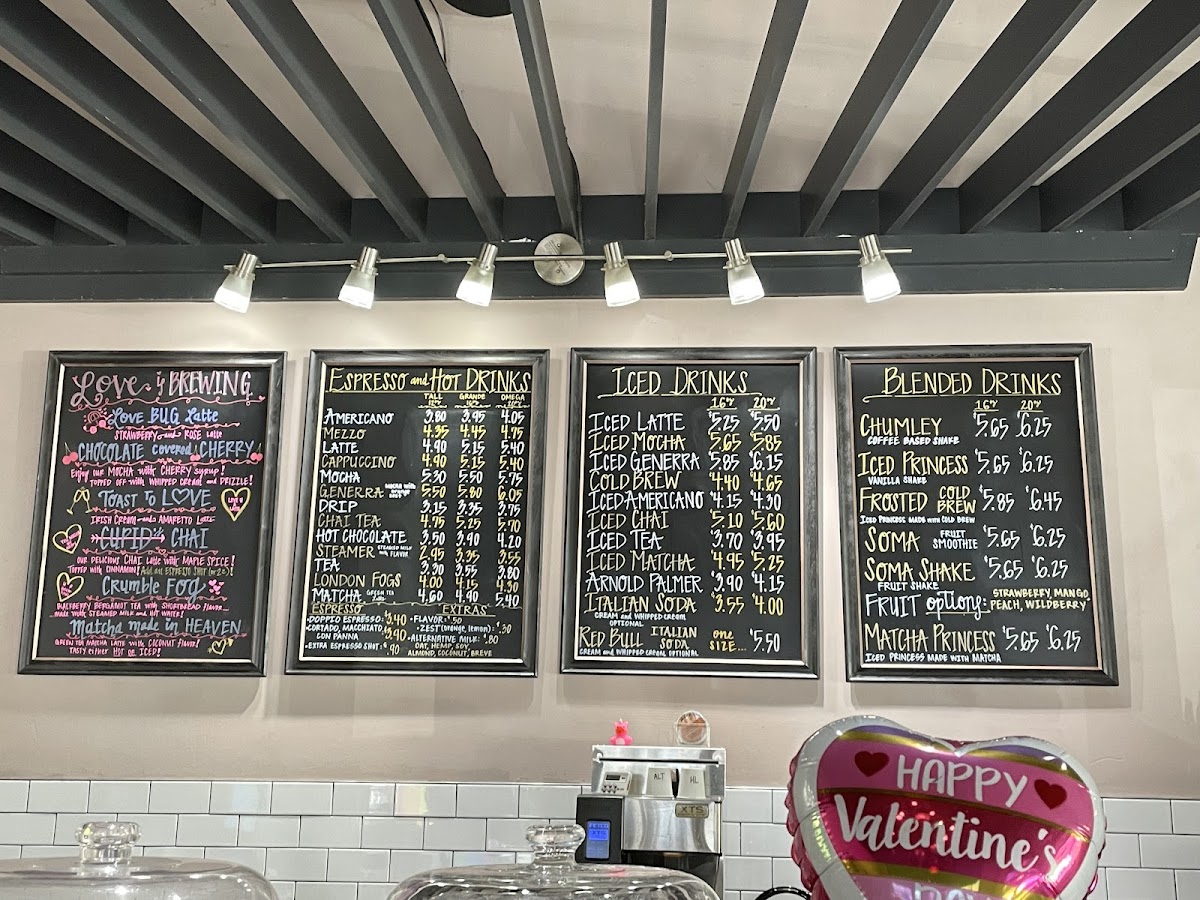 Love is BREWING
Love BUG Latte
STRAWBERRY and ROSE latte
CHOCOLATE covered CHERRY
Enjoy our MOCHA with CHERRY syrup!
TOPPED OFF with WHIPPED CREAM and DRIZZLE!
TOAST TO LOVE
IRISH CREAM and AMARETTO Latte
CUPID'S CHAI
OUR DELICIOUS CHAI Latte with MAPLE SPICE!
TOPPED with CINNAMON! Add an ESPRESSO SHOT (or 2)!
Crumble FOG
BLACKBERRY BERGAMOT TEA with SHORTBREAD flavor...
made with STEAMED MILK and HOT WATER!
Matcha made in HEAVEN
GREEN TEA MATCHA LATTE with COCONUT flavor!
TASTY either HOT or ICED!
ESPRESSO and HOT DRINKS
TALL GRANDE OMEGA
12oz 16oz 20oz
AMERICANO 3.80 3.95 4.05
MEZZO 4.35 4.45 4.75
LATTE 4.90 5.15 5.40
CAPPUCCINO 4.90 5.15 5.40
MOCHA 5.30 5.50 5.75
GENERRA MOCHA with 5.50 5.80 6.05
DRIP 3.15 3.35 3.75
CHAI TEA 4.75 5.25 5.70
HOT CHOCOLATE 3.50 3.90 4.20
STEAMER STEAMED MILK with FLAVOR 2.95 3.35 3.55
TEA 3.30 3.55 3.80
LONDON FOGS 4.00 4.15 4.30
MATCHA GREEN TEA LATTE 4.60 4.90 5.40
ESPRESSO
•DOPPIO ESPRESSO: $3.40
•CORTADO, MACCHIATO, CON PANNA $3.90
•EXTRA ESPRESSO SHOT: $.90
EXTRAS
•FLAVOR: $.50
•ZEST (orange, lemon): $.30
•ALTERNATIVE MILK: $.80
OAT, HEMP, SOY,
ALMOND, COCONUT, BREVE
ICED DRINKS
16oz 20oz
ICED LATTE $5.25 $5.50
ICED MOCHA $5.65 $5.85
ICED GENERRA $5.85 $6.15
COLD BREW $4.40 $4.65
ICED AMERICANO $4.15 $4.30
ICED CHAI $5.10 $5.60
ICED TEA $3.70 $3.95
ICED MATCHA $4.95 $5.25
ARNOLD PALMER $3.90 $4.15
ITALIAN SODA $3.55 $4.00
CREAM and WHIPPED CREAM
OPTIONAL
RED BULL ITALIAN SODA one SIZE... $5.50
CREAM and WHIPPED CREAM OPTIONAL
BLENDED DRINKS
16oz 20oz
CHUMLEY $5.65 $6.25
COFFEE BASED SHAKE
ICED PRINCESS $5.65 $6.25
VANILLA SHAKE
FROSTED COLD BREW $5.85 $6.45
ICED PRINCESS MADE with COLD BREW
SOMA FRUIT SMOOTHIE $5.65 $6.25
SOMA SHAKE $5.65 $6.25
FRUIT SHAKE
FRUIT options: STRAWBERRY, MANGO
PEACH, WILDBERRY
MATCHA PRINCESS $5.65 $6.25
ICED PRINCESS MADE with MATCHA
ALT
HL
XTS
XTS
HAPPY
Valentine's